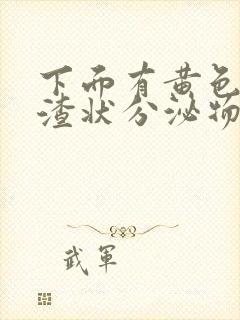 下面有黄色
渣状分泌物
武军